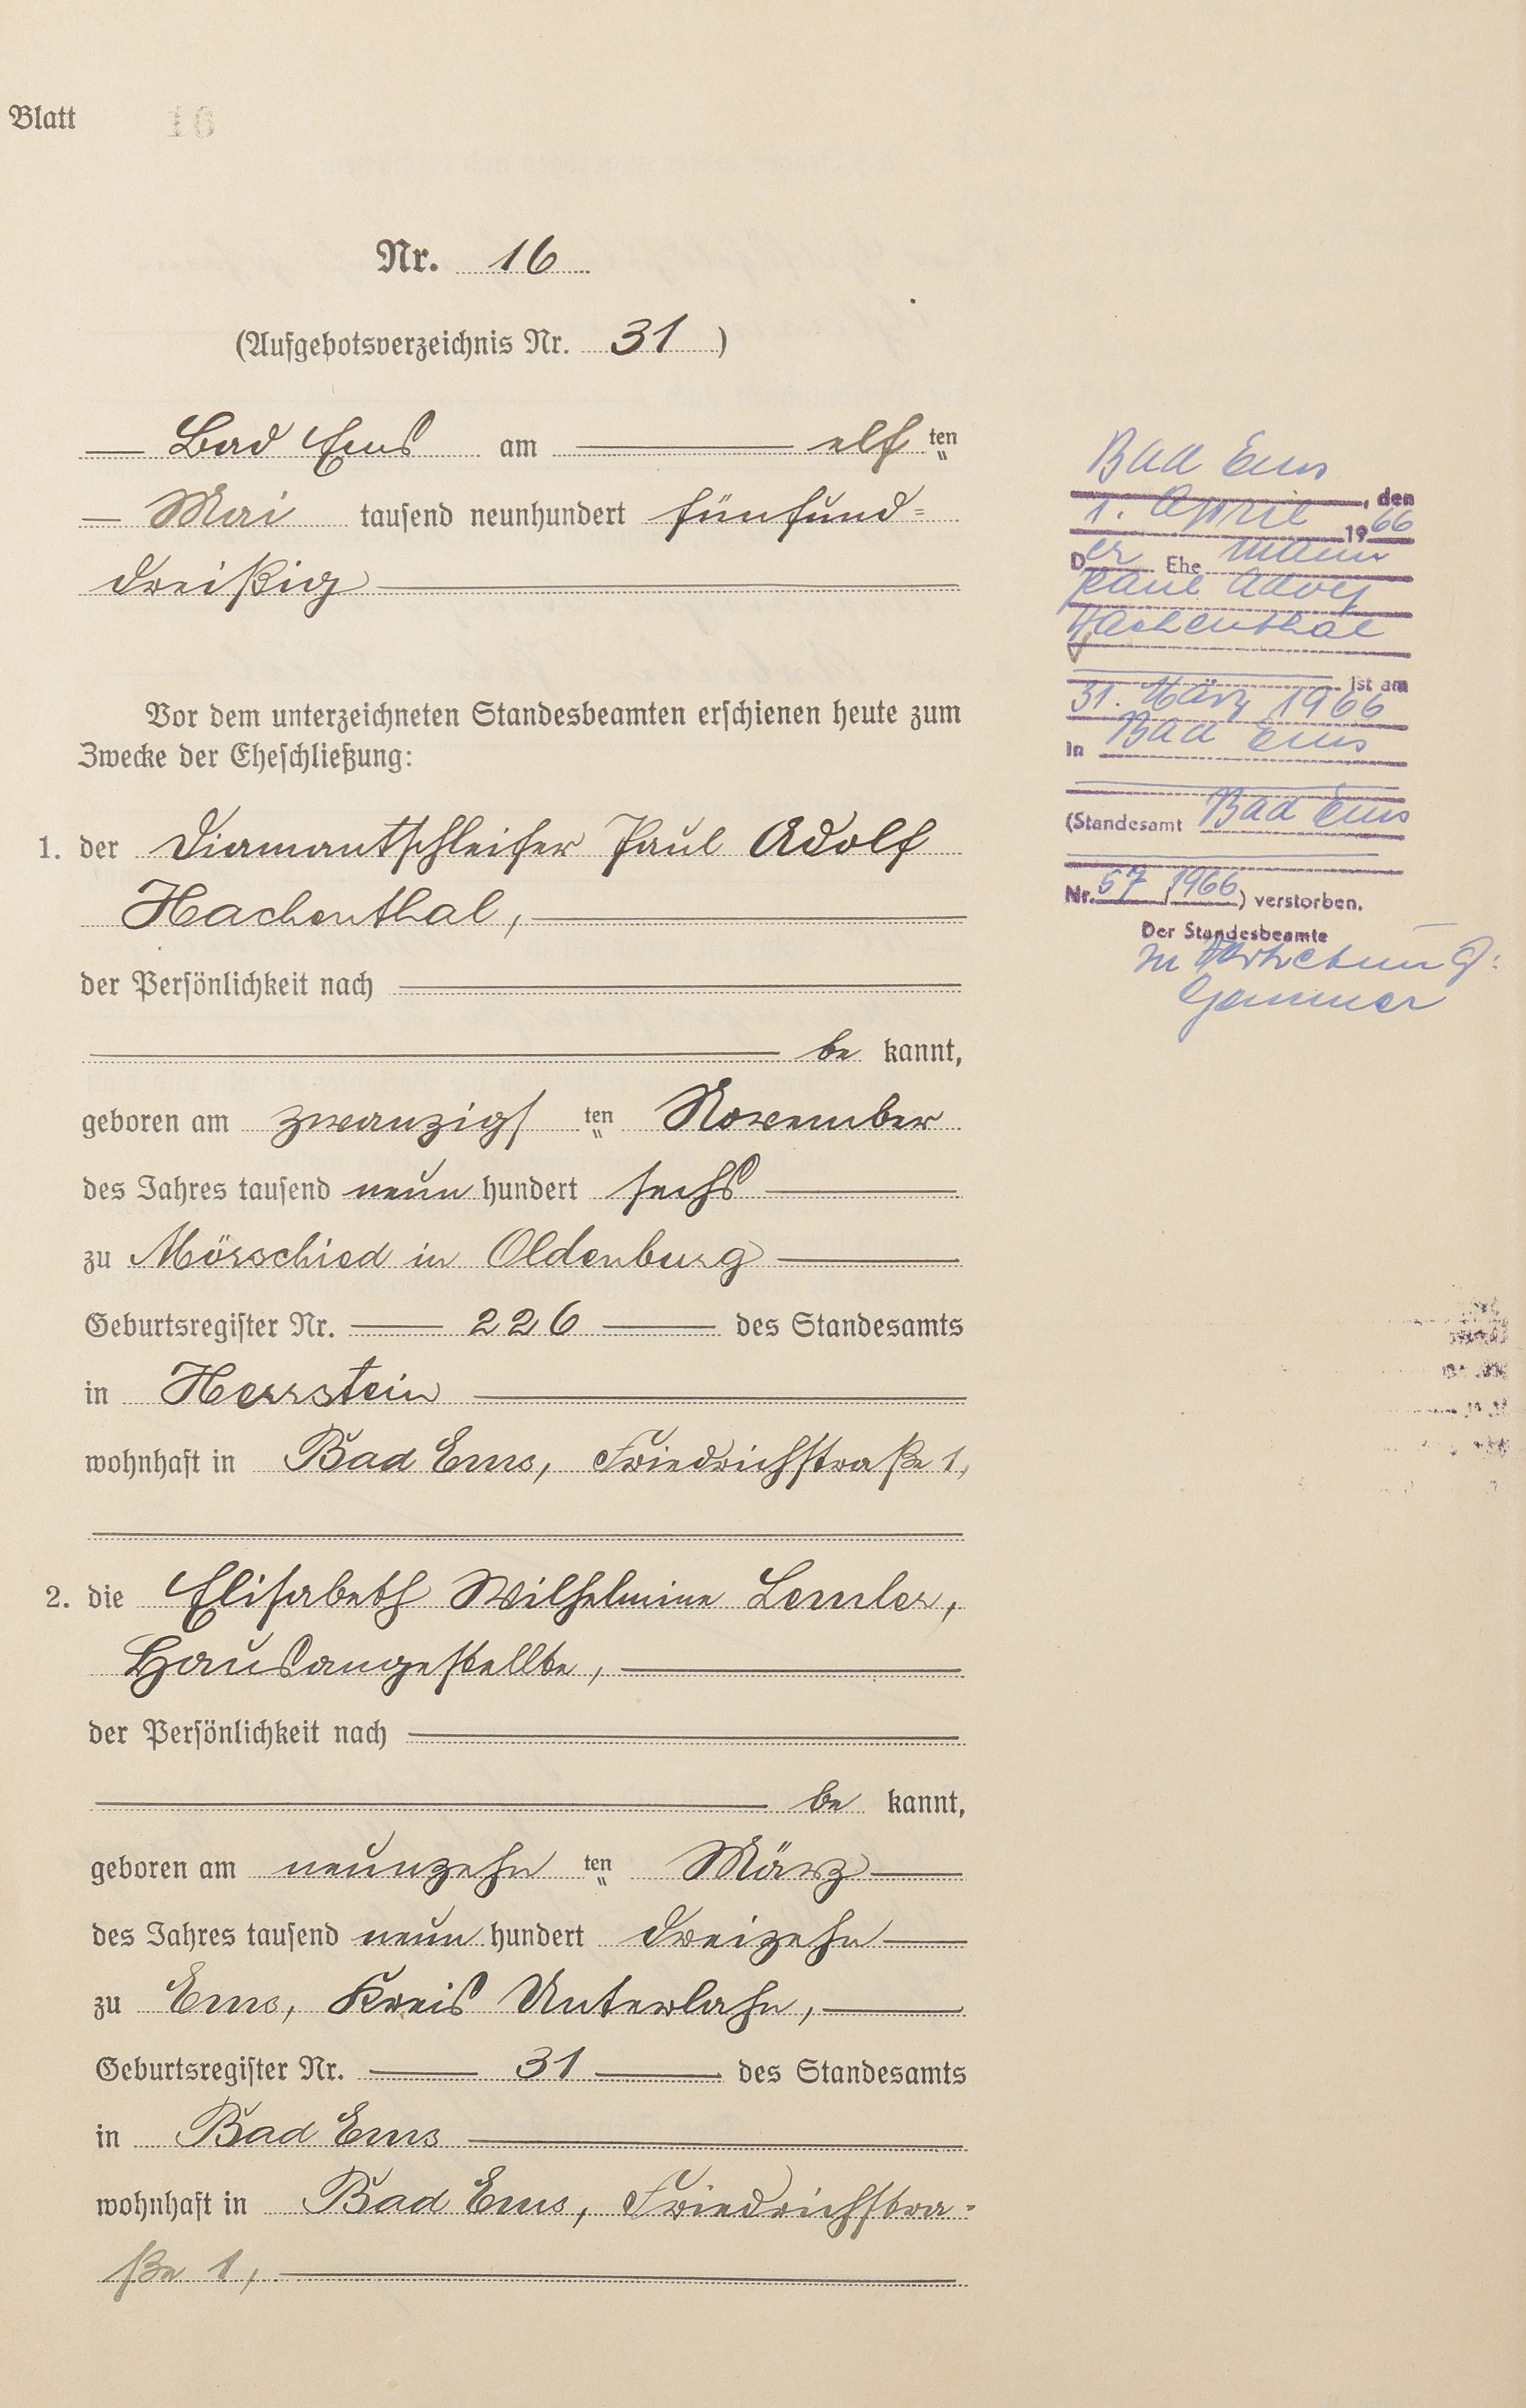 Blatt 16
Nr. 16
(Aufgebotsverzeichnis Nr. 31)
Bad Ems am elf ten
Mai tausend neunhundert fünfund=
dreißig
Vor dem unterzeichneten Standesbeamten erschienen heute zum
Zwecke der Eheschließung:
1. der Diamantschleifer Paul Adolf
Hachenthal,
der Persönlichkeit nach
be kannt,
geboren am zwanzigs ten November
des Jahres tausend neun hundert sechs
zu Mörschied in Oldenburg
Geburtsregister Nr. 226 des Standesamts
in Herrstein
wohnhaft in Bad Ems, Friedrichstraße 1,
2. die Elisabeth Wilhelmine Lemler,
Hausangestellte,
der Persönlichkeit nach
be kannt,
geboren am neunzehn ten März
des Jahres tausend neun hundert dreizehn
zu Ems, Kreis Unterlahn,
Geburtsregister Nr. 31 des Standesamts
in Bad Ems
wohnhaft in Bad Ems, Friedrichstra=
ße 1,
Bad Ems, den
1. April 1966
Der Ehemann
Paul Adolf
Hachenthal
ist am
31. März 1966
in Bad Ems
(Standesamt Bad Ems
Nr. 57/1966) verstorben.
Der Standesbeamte
In Vertretung: